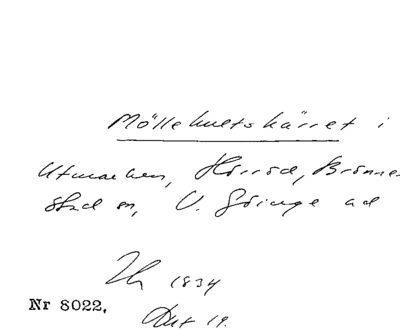 Möllehultskärret i
Utmarken, Hörröd, Brönne-
stad sn, V. Göinge hd
1834
Nr 8022. Akt 19.